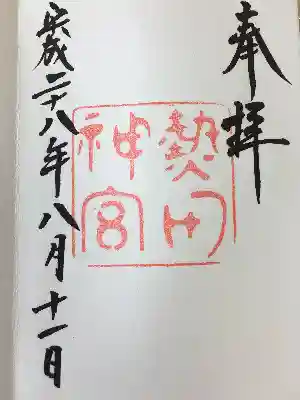 奉拝
熱田
神宮
平成二十八年八月十一日